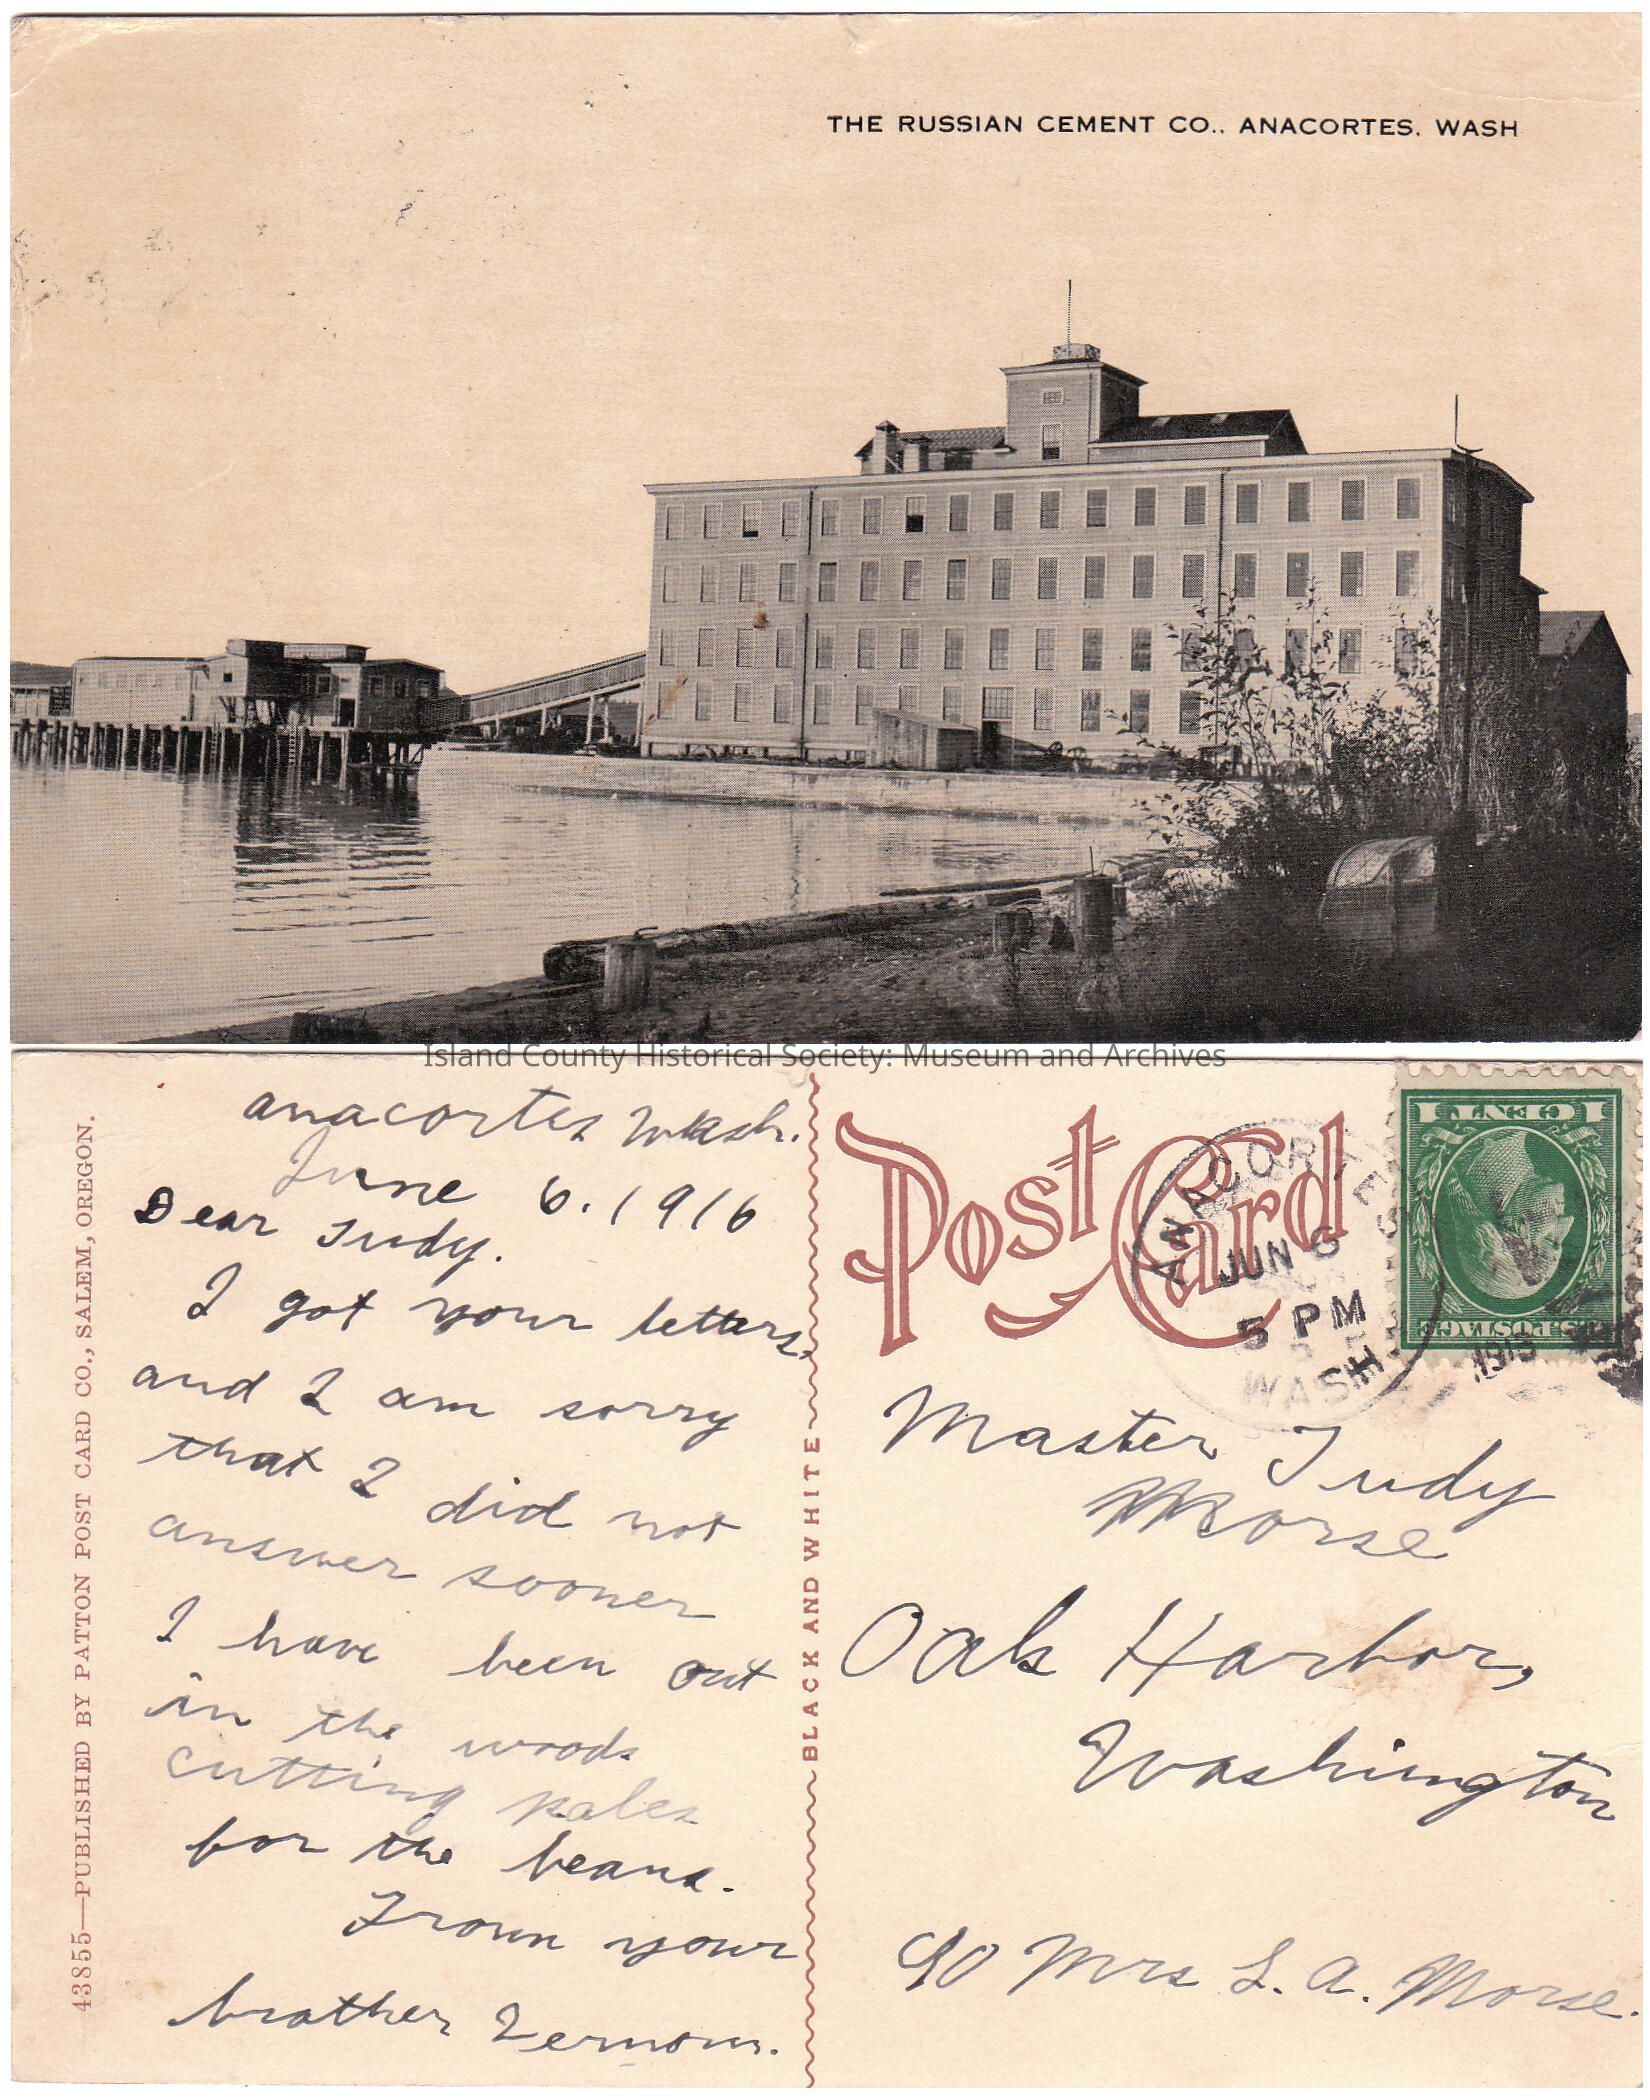 THE RUSSIAN CEMENT CO., ANACORTES, WASH
Island County Historical Society: Museum and Archives
43855—PUBLISHED BY PATTON POST CARD CO., SALEM, OREGON.
anacortes Wash.
June 6. 1916
Dear Judy.
I got your letters,
and I am sorry
that I did not
answer sooner
I have been out
in the woods
cutting poles
for the beans.
From your
brother Vernon.
BLACK AND WHITE
Post Card
ANACORTES
JUN 6
5 PM
WASH
1916
1 CENT 1
U.S. POSTAGE
Master Judy
Morse
Oak Harbor,
Washington
C/O Mrs L. A. Morse.